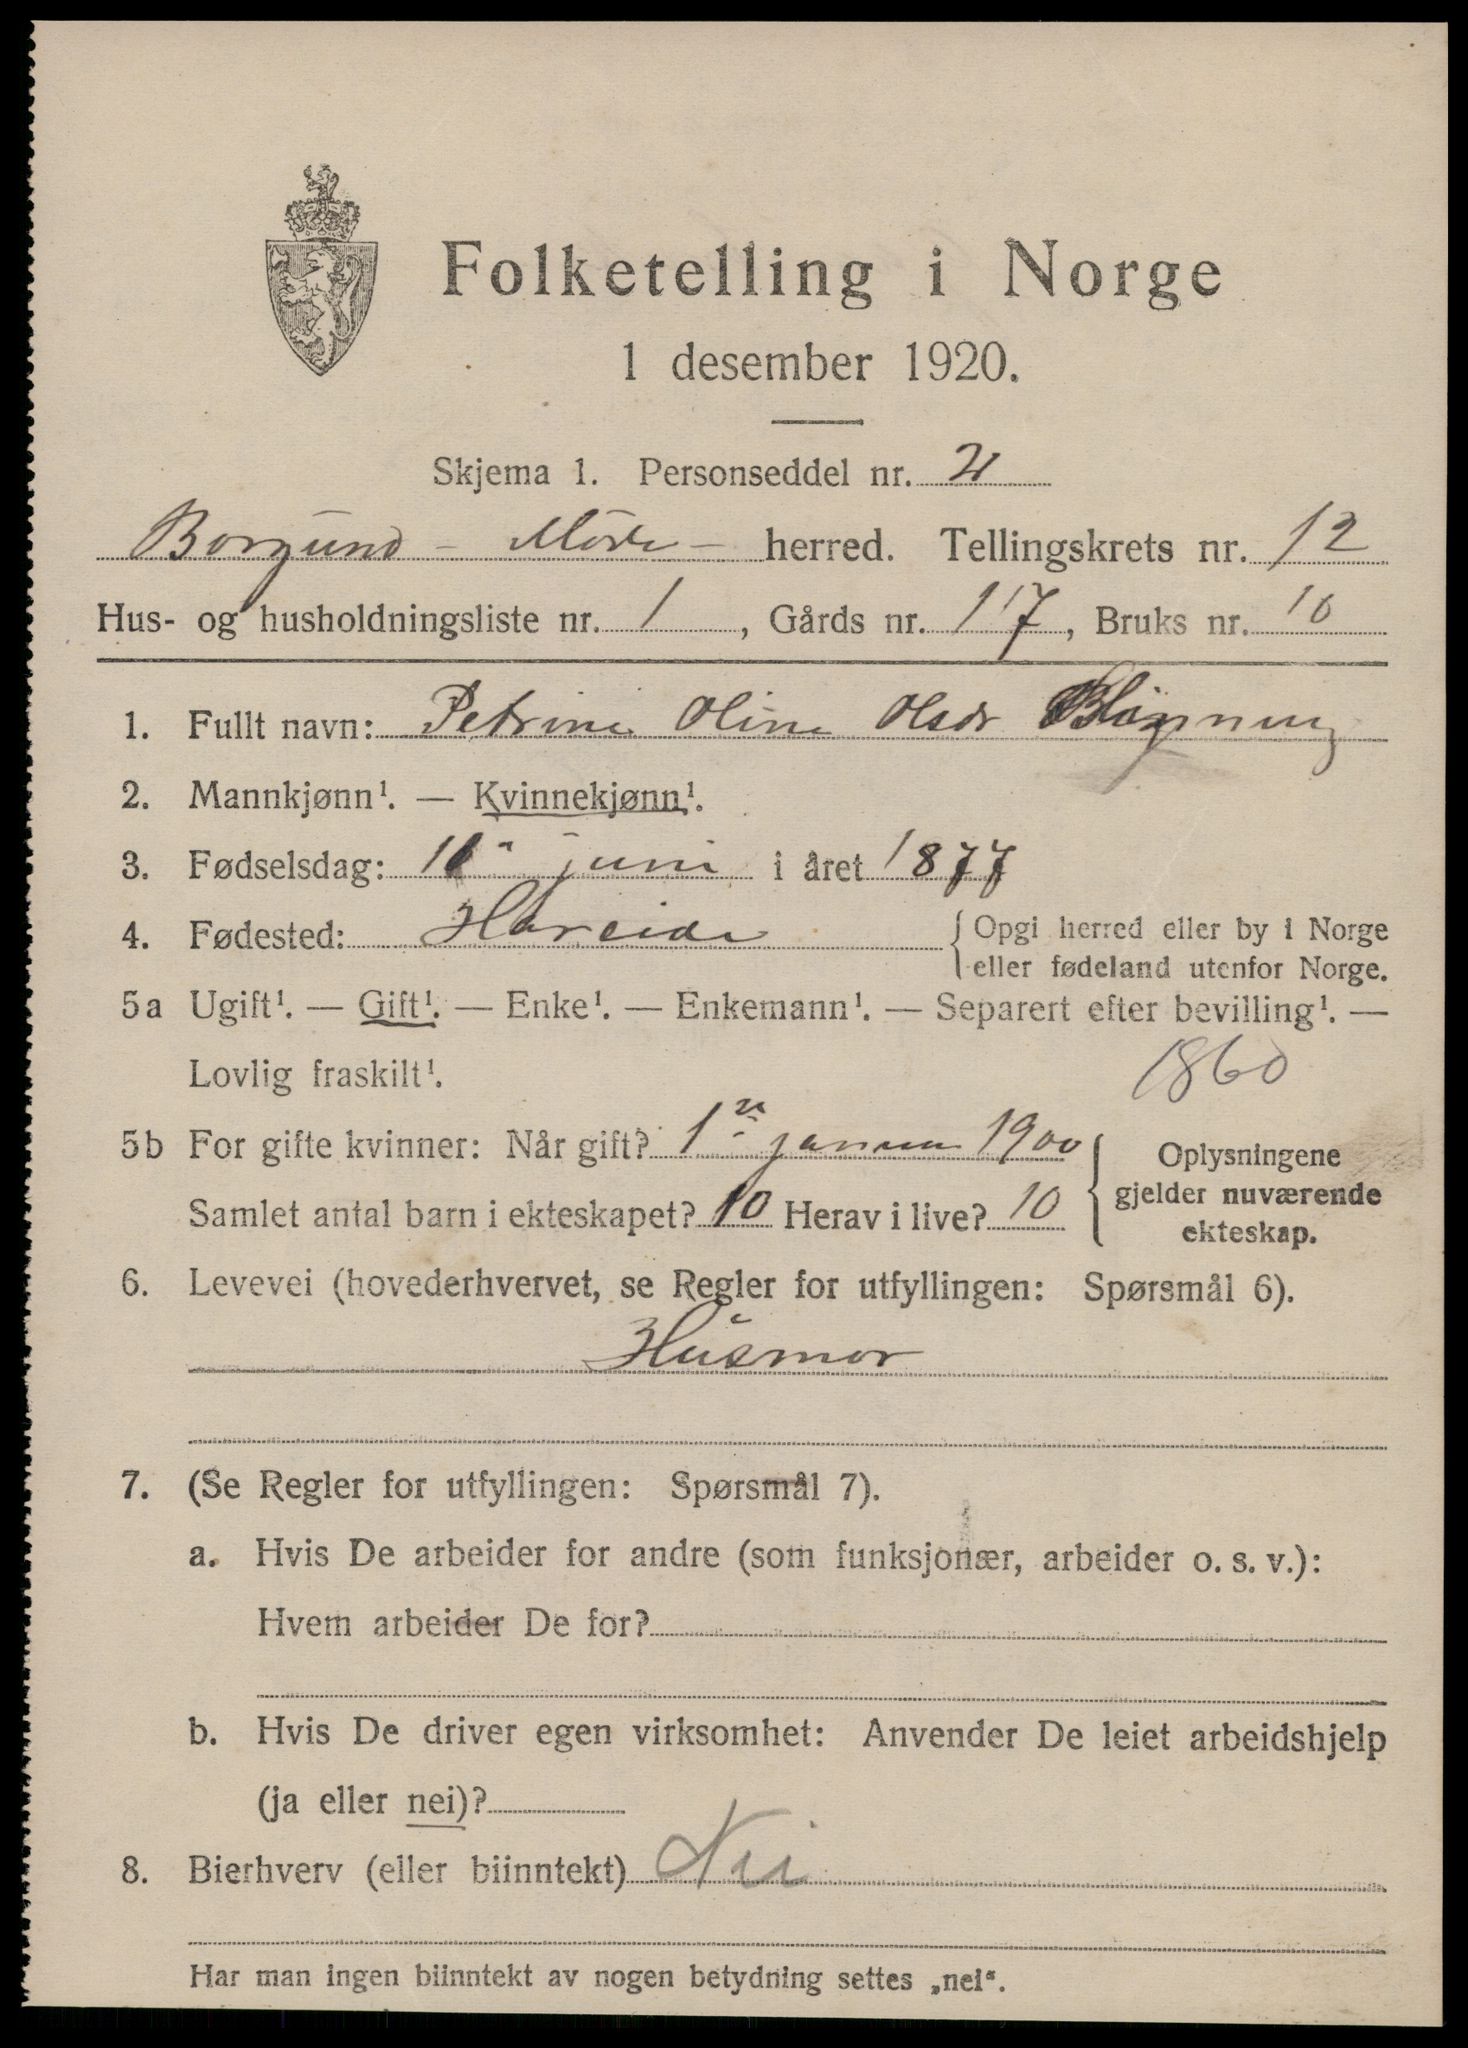 Folketelling i Norge
1 desember 1920.
Skjema 1. Personseddel nr. 2
Borgund - Møre - herred. Tellingskrets nr. 12
Hus- og husholdningsliste nr. 1, Gårds nr. 17, Bruks nr. 10
1. Fullt navn: Petrine Oline Olsdr
2. Mannkjønn¹. — Kvinnekjønn¹.
3. Fødselsdag: juni i året 1877
4. Fødested: Hareide {Opgi herred eller by i Norge
eller fødeland utenfor Norge.
5a Ugift¹. — Gift¹. — Enke¹. — Enkemann¹. — Separert efter bevilling¹. —
Lovlig fraskilt¹. 1860
5b For gifte kvinner: Når gift? 1 januar 1900 { Oplysningene
Samlet antal barn i ekteskapet? 10 Herav i live? 10 gjelder nuværende
ekteskap.
6. Levevei (hovederhvervet, se Regler for utfyllingen: Spørsmål 6).
Husmor
7. (Se Regler for utfyllingen: Spørsmål 7).
a. Hvis De arbeider for andre (som funksjonær, arbeider o. s. v.):
Hvem arbeider De for?
b. Hvis De driver egen virksomhet: Anvender De leiet arbeidshjelp
(ja eller nei)?
8. Bierhverv (eller biinntekt) Nei
Har man ingen biinntekt av nogen betydning settes „nei“.